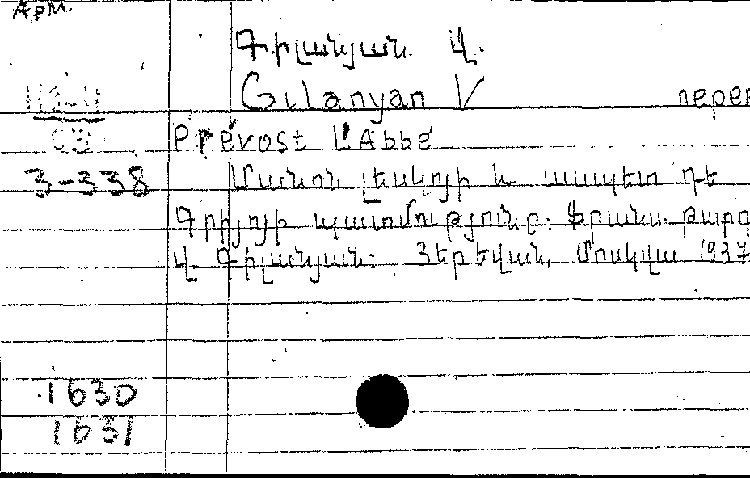 Арм.
Գիլանյան Վ.
Gulanyan V перев
Prévost L'Abbé
3-338 Մանոն Լեսկոյի և ասպետ դե
Գրիյոյի պատմությունը. Ֆրանս. թարգ
Վ. Գիլանյան: Յերեվան, Մոսկվա 1937
1630
1631